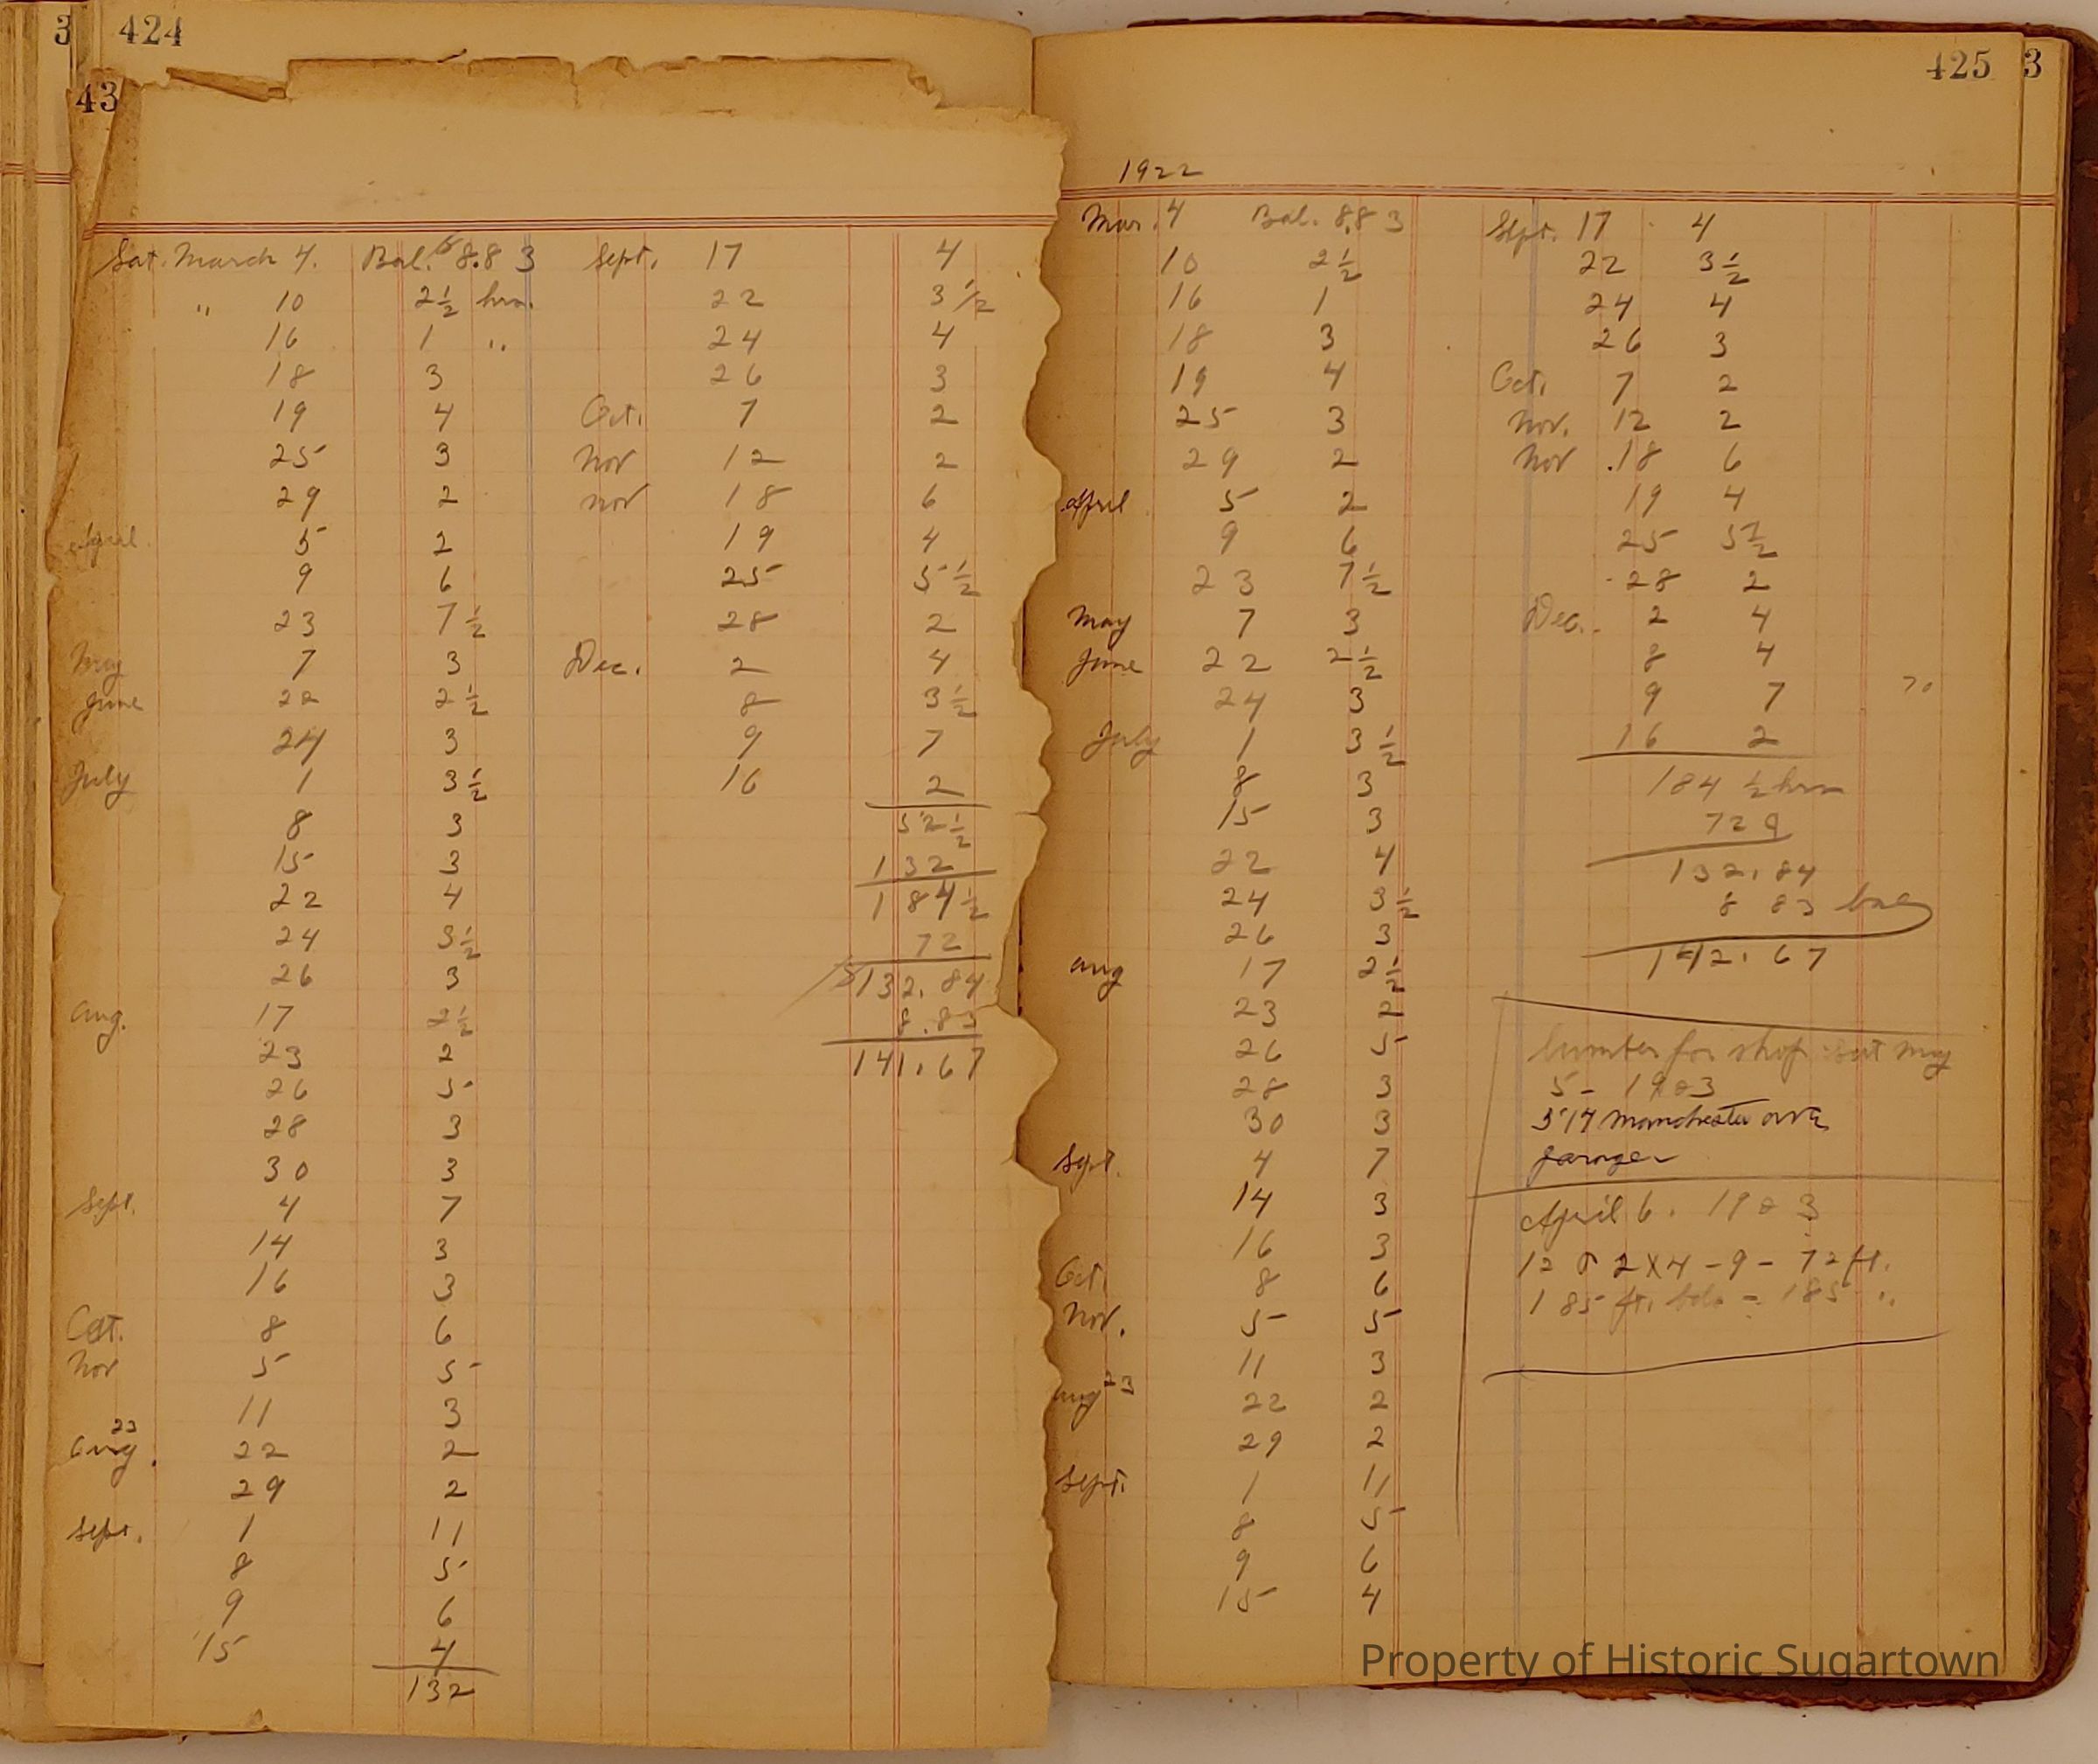 3 424
43
Sat. March 4. Bal. $8.83
" 10 2½ hrs.
16 1 "
18 3
19 4
25 3
29 2
April 5 2
9 6
23 7½
May 7 3
June 22 2½
24 3
July 1 3½
8 3
15 3
22 4
24 3½
26 3
Aug. 17 2½
23 2
26 5
28 3
30 3
Sept. 4 7
14 3
16 3
Oct. 8 6
Nov 5 5
11 3
Aug. 23 22 2
29 2
Sept. 1 11
8 5
9 6
15 4
132
Sept. 17 4
22 3 1/2
24 4
26 3
Oct. 7 2
Nov 12 2
Nov 18 6
19 4
25 5½
28 2
Dec. 2 4
8 3½
9 7
16 2
52½
132
184½
72
$132.84
8.83
141.67
425 3
1922
Mar. 4 Bal. 8.83
10 2½
16 1
18 3
19 4
25 3
29 2
April 5 2
9 6
23 7½
May 7 3
June 22 2½
24 3
July 1 3½
8 3
15 3
22 4
24 3½
26 3
Aug 17 2½
23 2
26 5
28 3
30 3
Sept. 4 7
14 3
16 3
Oct. 8 6
Nov. 5 5
11 3
Aug 23 22 2
29 2
Sept. 1 11
8 5
9 6
15 4
Sept. 17 4
22 3½
24 4
26 3
Oct. 7 2
Nov. 12 2
Nov .18 6
19 4
25 5½
28 2
Dec. 2 4
8 4
9 7
70
16 2
184 ½ hrs
72
132.84
8 83 bal
142.67
lumber for shop Sat May
5 - 1923
314 Manchester ave
garage
April 6. 1923
12 2X4 - 9 - 72 ft.
185 ft. bds - 185 "
Property of Historic Sugartown